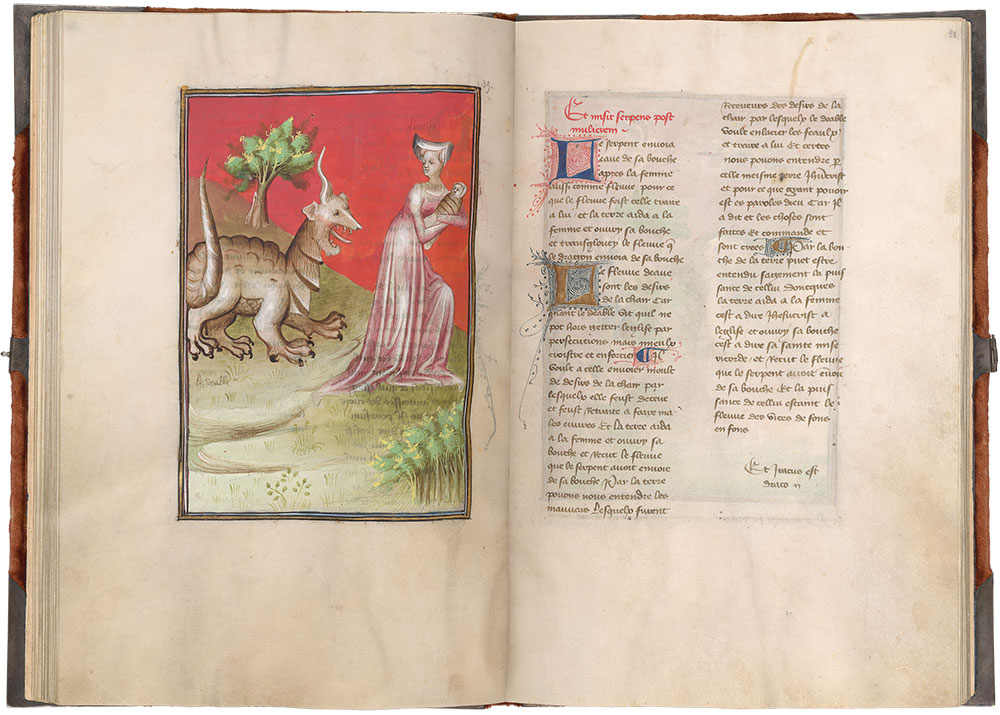 le deable
Et misit serpens post
mulierem
Le serpent envoia
eaue de sa bouche
apres la femme
aussi comme fleuve pour ce
que le fleuve feist celle traire
a lui et la terre aida a la
femme et ouvry sa bouche
et transglouty le fleuve q̄
le dragon envoia de sa bouche
Le fleuve deaue
sont les desirs
de la chair Car
quant le deable vit quil ne
pot hors getter leglise par
persecutions mais mieulx
croistre et enforcier Il
voult a celle envoier moult
de desirs de la chair par
lesquelx elle feust deceue
et feust retraite a faire ma
les euvres Et la terre aida
a la femme et ouvry sa
bouche et recut le fleuve
que le serpent avoit envoie
de sa bouche Par la terre
povons nous entendre les
mauvais lesquelx furent
receveurs des desirs de la
chair par lesquelx le deable
voult enlacier les feaulx
et traire a lui Et certes
nous povons entendre p
celle meisme terre Jhucrist
et pour ce que grant povoir
est es paroles dieu Car Il
a dit et les choses sont
faittes Et commande et
sont crees Par la bou
che de la terre puet estre
entendu sagement la puis
sance de cellui Doncques
la terre aida a la femme
cest a dire Jhesucrist a
leglise et ouvry sa bouche
cest a dire sa sainte mise
ricorde et recut le fleuve
que le serpent avoit envoie
de sa bouche Et la puis
sance de cellui estaint le
fleuve des vices de fons
en fons
Et Iratus est
draco n